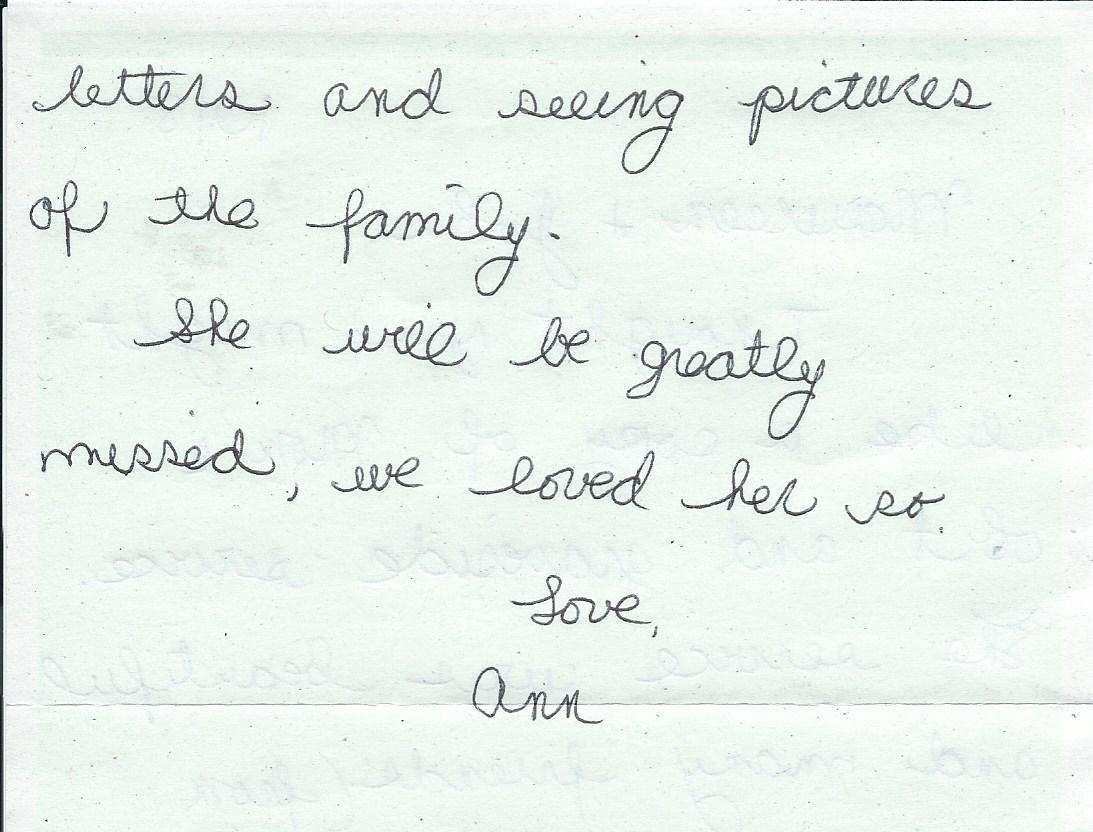 letters and seeing pictures
of the family.
She will be greatly
missed, we loved her so.
Love,
Ann